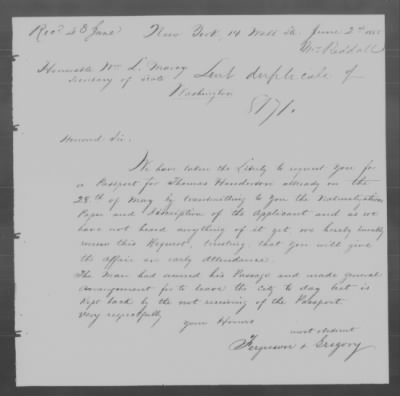 Recd 4th June New York, 14 Wall St. June 2nd 185
Mr Reddall
Honorable Wm L. Marcy
Secretary of State
Sent duplicate of
Washington
Honored Sir.
We have taken the Liberty to request You for
a Passport for Thomas Henderson already on the
28th of May by transmitting to You the Naturalization
Paper and Description of the Applicant and as we
have not heard anything of it yet, we hereby
renew this Request, trusting that you will give
the affair an early attendance.
The Man had secured his Passage and made general
arrangement for to leave the City to day but is
kept back by the not receiving of the Passport
Very respectfully
your Honors
most obedient
Ferguson & Gregory